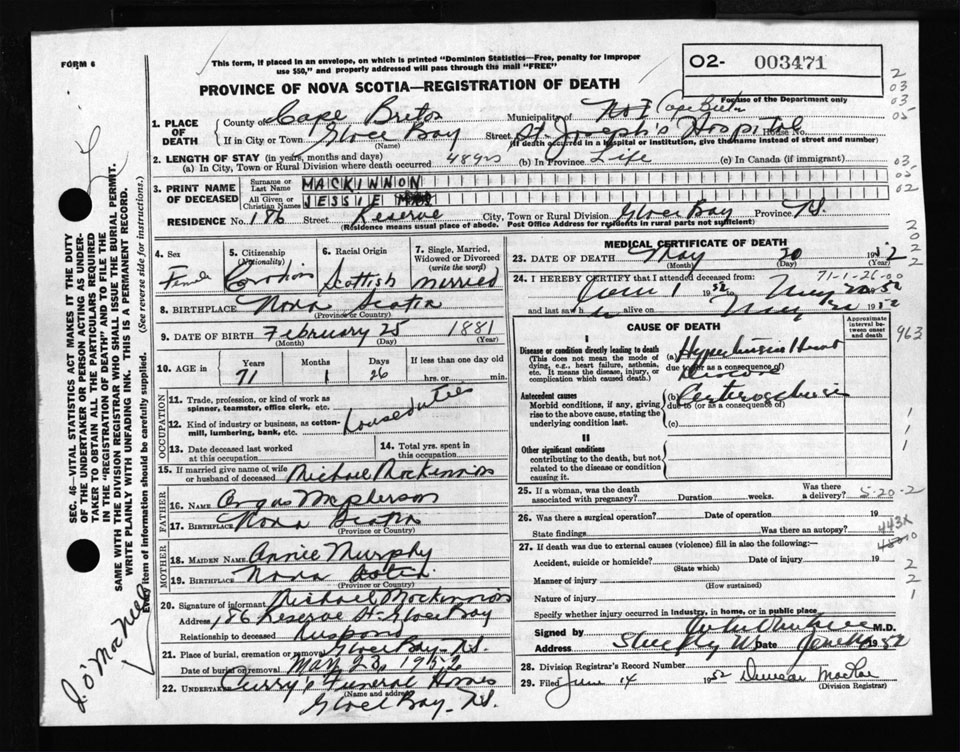 FORM 6
This form, if placed in an envelope, on which is printed "Dominion Statistics—Free, penalty for improper
use $50," and properly addressed will pass through the mail "FREE"
O2- 003471
For use of the Department only
PROVINCE OF NOVA SCOTIA—REGISTRATION OF DEATH
1. PLACE OF DEATH
County of Cape Breton
Municipality of No 1 Cape Breton
If in City or Town Glace Bay (Name) Street St. Joseph's Hospital House No.
(If death occurred in a hospital or institution, give the name instead of street and number)
2. LENGTH OF STAY (in years, months and days)
(a) In City, Town or Rural Division where death occurred 48 yrs (b) In Province Life (c) In Canada (if immigrant)
3. PRINT NAME OF DECEASED
Surname or Last Name MACKINNON
All Given or Christian Names JESSIE
RESIDENCE No. 186 Street Reserve City, Town or Rural Division Glace Bay Province N.S.
(Residence means usual place of abode. Post Office Address for residents in rural parts not sufficient)
4. Sex Female
5. Citizenship (Nationality) Canadian
6. Racial Origin Scottish
7. Single, Married, Widowed or Divorced (write the word) Married
8. BIRTHPLACE Nova Scotia
(Province or Country)
9. DATE OF BIRTH February 25 1881
(Month) (Day) (Year)
10. AGE in Years 71 Months 1 Days 26 If less than one day old hrs. or min.
OCCUPATION
11. Trade, profession, or kind of work as spinner, teamster, office clerk, etc.
12. Kind of industry or business, as cotton-mill, lumbering, bank, etc. housedutees
13. Date deceased last worked at this occupation
14. Total yrs. spent in this occupation
15. If married give name of wife or husband of deceased Michael Mackinnon
FATHER
16. NAME Angus Mcpherson
17. BIRTHPLACE Nova Scotia
(Province or Country)
MOTHER
18. MAIDEN NAME Annie Murphy
19. BIRTHPLACE Nova Scotia
(Province or Country)
20. Signature of informant Michael Mackinnon
Address 186 Reserve St Glace Bay
Relationship to deceased Husband
21. Place of burial, cremation or removal Glace Bay N.S.
Date of burial or removal May 23, 1952
22. UNDERTAKER Curry's Funeral Homes
(Name and address)
Glace Bay N.S.
MEDICAL CERTIFICATE OF DEATH
23. DATE OF DEATH May 20 1952
(Month) (Day) (Year)
71-1-26-00
24. I HEREBY CERTIFY that I attended deceased from:
June 1 1952 May 20 1952
and last saw h alive on May 1952
CAUSE OF DEATH
Approximate interval between onset and death
I
Disease or condition directly leading to death
(This does not mean the mode of dying, e.g., heart failure, asthenia, etc. It means the disease, injury, or complication which caused death.)
(a) Hypertensive Heart Disease
due to (or as a consequence of)
Antecedent causes
Morbid conditions, if any, giving rise to the above cause, stating the underlying condition last.
(b)
due to (or as a consequence of)
(c)
II
Other significant conditions
contributing to the death, but not related to the disease or condition causing it.
25. If a woman, was the death associated with pregnancy? Duration weeks. Was there a delivery? 5-20-2
26. Was there a surgical operation? Date of operation 19
State findings Was there an autopsy?
443X
27. If death was due to external causes (violence) fill in also the following:—
Accident, suicide or homicide? (State which) Date of injury 19
Manner of injury
(How sustained)
Nature of injury
Specify whether injury occurred in industry, in home, or in public place
Signed by M.D.
Address Date 1952
28. Division Registrar's Record Number
29. Filed June 14 1952 Duncan MacRae
(Division Registrar)
SEC. 46—VITAL STATISTICS ACT MAKES IT THE DUTY
OF THE UNDERTAKER OR PERSON ACTING AS UNDER-
TAKER TO OBTAIN ALL THE PARTICULARS REQUIRED
IN THE "REGISTRATION OF DEATH" AND TO FILE THE
SAME WITH THE DIVISION REGISTRAR WHO SHALL ISSUE THE BURIAL PERMIT.
WRITE PLAINLY WITH UNFADING INK. THIS IS A PERMANENT RECORD.
Every item of information should be carefully supplied. (See reverse side for instructions.)
J. O'MacNeil
2
03
03
05
03
03
02
2
0
2
2
963
1
1
1
2
2
1